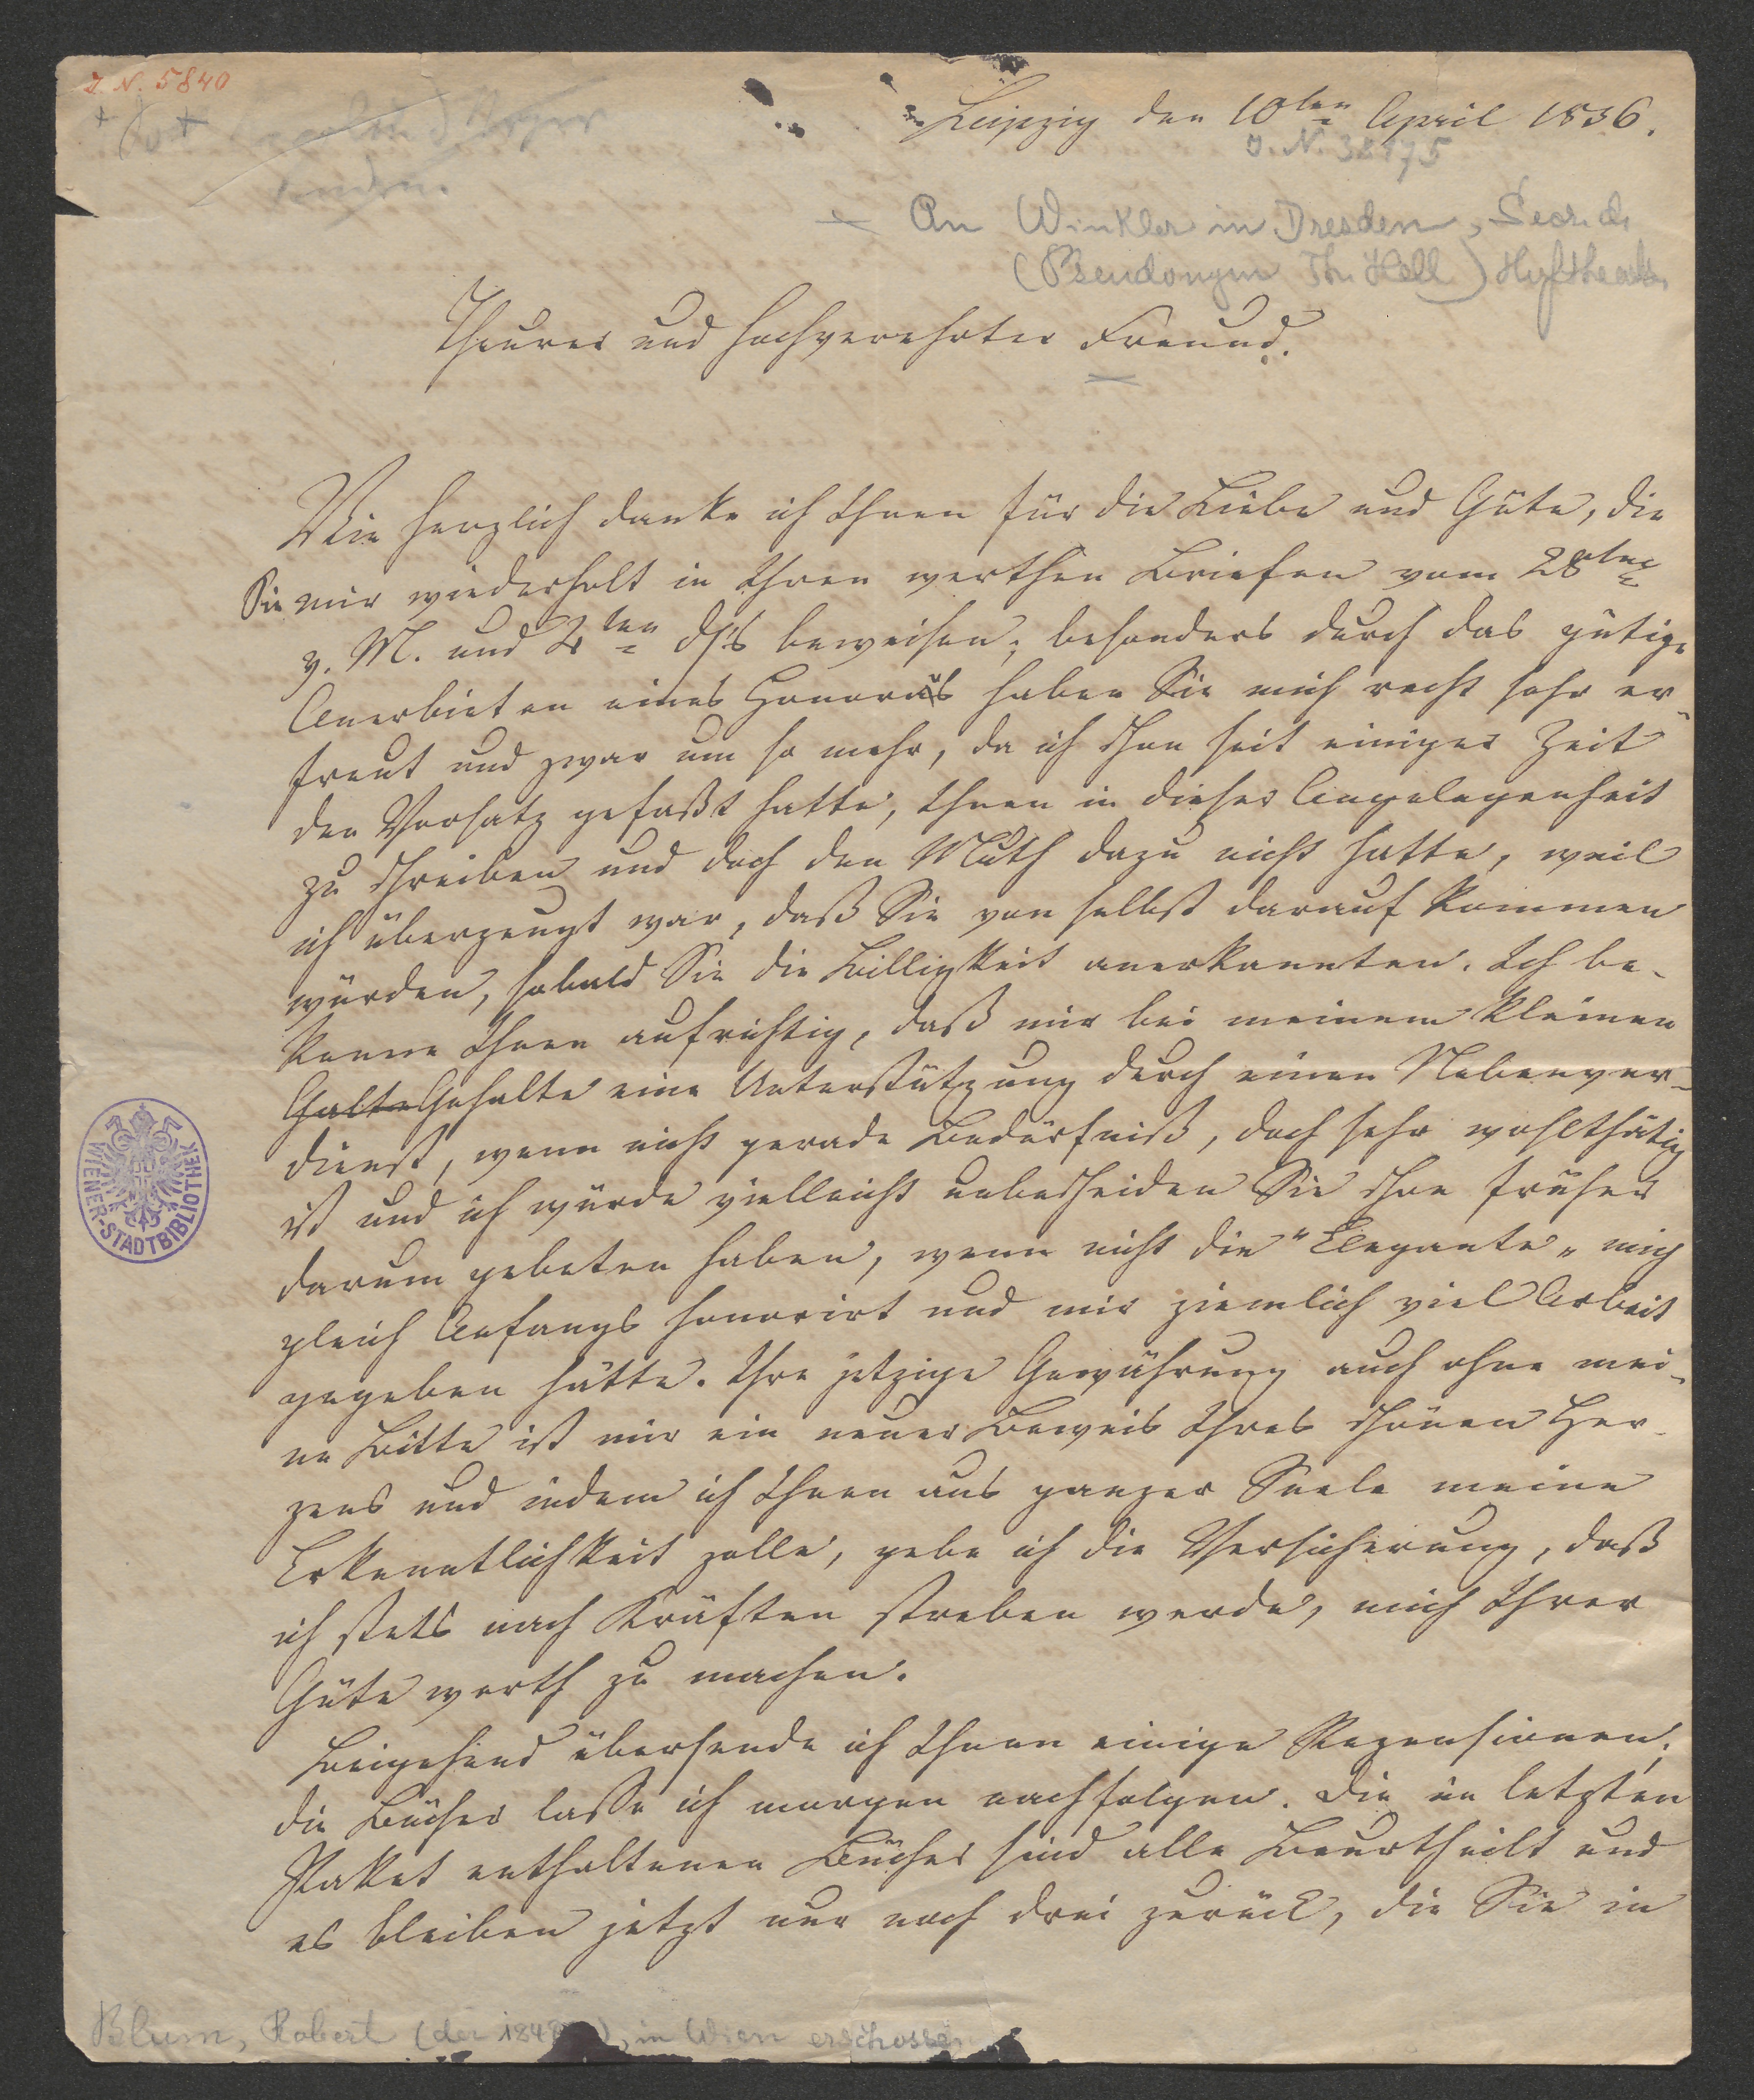 J. N. 5840
Leipzig den 10ten April 1836.
J. N. 38175
An Winkler in Dresden, Secr. d.
(Pseudonym Th. Hell) Hoftheaters
Theurer und hochverehrter Freund.
Wie herzlich danke ich Ihnen für die Liebe und Güte, die
Sie mir wiederholt in Ihren werthen Briefen vom 28ten
v. M. und 4ten ds beweisen; besonders durch das gütige
Anerbieten eines Honorars haben Sie mich recht sehr er-
freut und zwar um so mehr, da ich schon seit einiger Zeit
den Vorsatz gefaßt hatte, Ihnen in dieser Angelegenheit
zu schreiben und doch den Muth dazu nicht hatte, weil
ich überzeugt war, daß Sie von selbst darauf kommen
würden, sobald Sie die Billigkeit anerkannten. Ich be-
kenne Ihnen aufrichtig, daß mir bei meinem kleinen
Galte Gehalte eine Unterstützung durch einen Nebenver-
dienst, wenn nicht gerade Bedürfniß, doch sehr wohlthätig
ist und ich würde vielleicht unbescheiden Sie schon früher
darum gebeten haben, wenn nicht die "Elegante" mich
gleich Anfangs honorirt und mir ziemlich viel Arbeit
gegeben hätte. Ihre jetzige Gewährung auch ohne mei-
ne Bitte ist mir ein neuer Beweis Ihres schönen Her-
zens und indem ich Ihnen aus ganzer Seele meine
Erkenntlichkeit zolle, gebe ich die Versicherung, daß
ich stets nach Kräften streben werde, mich Ihrer
Güte werth zu machen.
Beigehend übersende ich Ihnen einige Rezensionen;
die Bücher lasse ich morgen nachfolgen. Die in letzten
Paket enthaltenen Bücher sind alle beurtheilt und
es bleiben jetzt nur noch drei zurück, die Sie in
WIENER-STADTBIBLIOTHEK
Blum, Robert (der 1848 in Wien erschossen